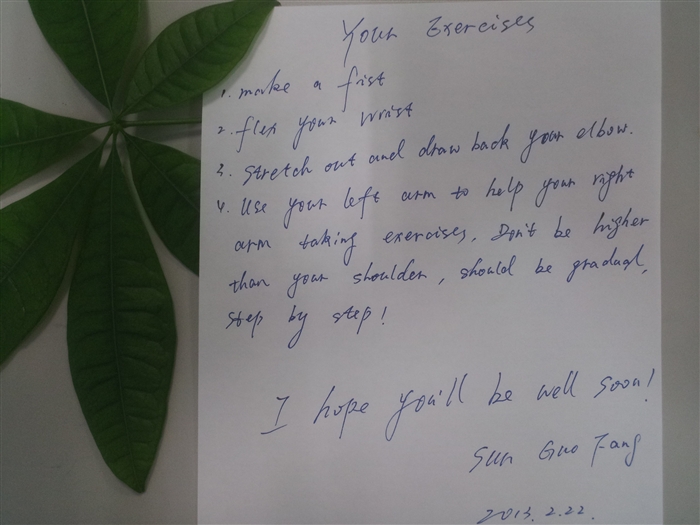 Your Exercises
1. make a fist
2. flex your wrist
3. stretch out and draw back your elbow.
4. Use your left arm to help your right
arm taking exercises. Don't be higher
than your shoulder, should be gradual,
step by step!
I hope you'll be well soon!
Sun Guo Fang
2013.2.22.